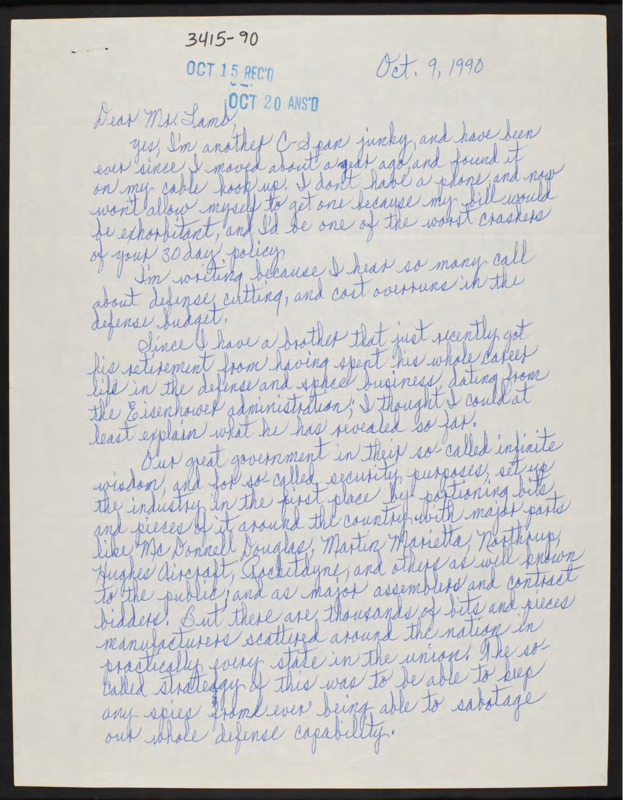 3415-90
OCT 15 REC'D
Oct. 9, 1990
OCT 20 ANS'D
Dear Mr. Lamb,
Yes, I'm another C-Span junky, and have been
ever since I moved about a year ago, and found it
on my cable hook up. I don't have a phone, and now
won't allow myself to get one because my bill would
be exhorbitant, and I'd be one of the worst crashers
of your 30 day policy.
I'm writing because I hear so many call
about defense cutting, and cost overruns in the
defense budget.
Since I have a brother that just recently got
his retirement from having spent his whole career
life in the defense and space business, dating from
the Eisenhower administration; I thought I could at
least explain what he has revealed so far.
Our great government in their so-called infinite
wisdom, and for so-called security purposes, set up
the industry in the first place by portioning bits
and pieces of it around the country with major parts
like McDonnell Douglas, Martin Marietta, Northrup,
Hughes Aircraft, Rocketdyne, and others as well known
to the public, and as major assemblers and contract
bidders. But there are thousands of bits and pieces
manufacturers scattered around the nation in
practically every state in the union. The so-
called strategy of this was to be able to keep
any spies from ever being able to sabotage
our whole defense capability.